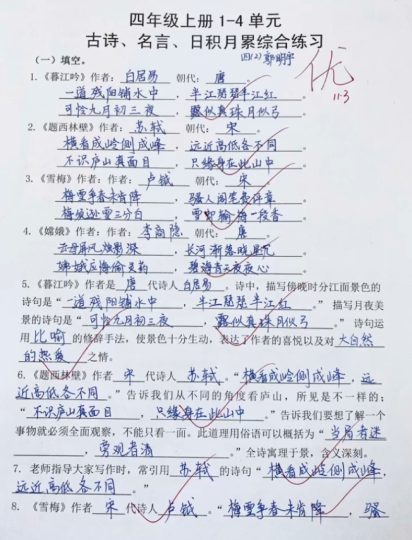 四年级上册1-4单元
古诗、名言、日积月累综合练习
四(2) 郭明宇
优
11.3
(一)填空。
1.《暮江吟》作者:白居易 朝代:唐
一道残阳铺水中,半江瑟瑟半江红。
可怜九月初三夜,露似真珠月似弓。
2.《题西林壁》作者:苏轼 朝代:宋
横看成岭侧成峰,远近高低各不同
不识庐山真面目,只缘身在此山中
3.《雪梅》作者:作者:卢钺 朝代:宋
梅雪争春未肯降,骚人阁笔费评章
梅须逊雪三分白,雪却输梅一段香
4.《嫦娥》作者:李商隐,朝代:唐
云母屏风烛影深,长河渐落晓星沉
嫦娥应悔偷灵药,碧海青天夜夜心
5.《暮江吟》作者是唐代诗人白居易。诗中,描写傍晚时分江面景色的
诗句是“一道残阳铺水中,半江瑟瑟半江红。”描写月夜美
景的诗句是“可怜九月初三夜,露似真珠月似弓。”诗句运
用比喻的修辞手法,使景色十分生动,表达了作者的喜悦以及对大自然
的热爱之情。
6.《题西林壁》作者宋代诗人苏轼。“横看成岭侧成峰,远
近高低各不同。”告诉我们从不同的角度看庐山,所见是不一样的;
“不识庐山真面目,只缘身在此山中。”告诉我们要想了解一个
事物就必须全面观察,不能只看一面。此道理用俗语可以概括为“当局者迷
,旁观者清。”全诗寓理于景,含义深刻。
7. 老师指导大家写作时,常引用苏轼的诗句“横看成岭侧成峰,
远近高低各不同。”
8.《雪梅》作者宋代诗人卢钺。“梅雪争春未肯降,骚